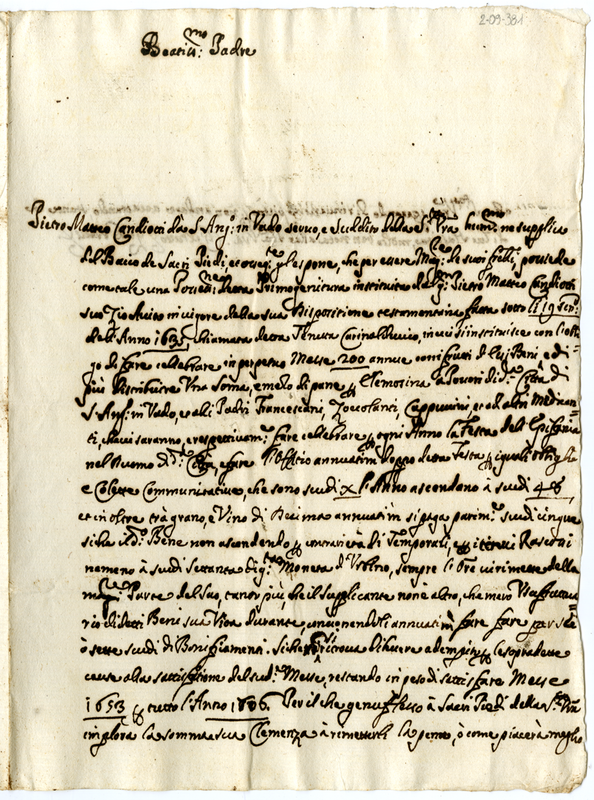 2-09-381
Beatiss:mo Padre
Pietro Matteo Candiotti da S. Ang: in Vado servo, e suddito della S.tà Vra hum:mo ne supplica
del Bacio de Sacri Piedi ecc. espone, che per essere Mag:re de suoi frelli, possede
come tale una Primogenitura instituita da Pietro Matteo Candiotti
suo Zio Avito in vigore della sua Dispositione testamentaria fatta sotto li 19
dell'Anno 1635 chiamata detta Tenuta in cui si instituisce con l'obli
go di fare celebrare in perpetuo Messe 200 annue con i frutti di Beni e di
più distribuire Una Soma, e mezo di pane p Elemosina a Poveri di d.a Città di
S. Ang. in Vado, e alli Padri Francescani, Zoccolanti, Cappuccini, et ad altri Mendican=
ti, che vi saranno, e respettivam:te fare celebrare p ogni Anno la Festa dell'Epifania
nel Duomo di d.a Città, e fare l'Offitio annuatim doppo detta Festa p i quali oblighi
e Colette Communitative, che sono scudi X l'Anno ascendono à scudi 48
et in oltre trà grano, e Vino di Decima annuatim si paga parim:te scudi cinque
si che d.o Bene non ascendendo p Temporali, et
nemeno à scudi settanta di Moneta d'Urbino, sempre
Parte del suo, tanto più, che il supplicante non è altro, che mero Usufruttua=
rio di detti Beni sua Vita durante, annuatim fare fare per
ò sette scudi di Bonificamenti. Si che si ritrova di havere adempito p le sopradette
cause alla satisfatione del sud.e Messe, restando in peso di satisfare Messe
1653 p tutto l'Anno 1686. Per il che genuflesso à Sacri Piedi della S.tà Vra
implora la somma sua Clemenza à rimetterli la pena, ò come piacerà meglio